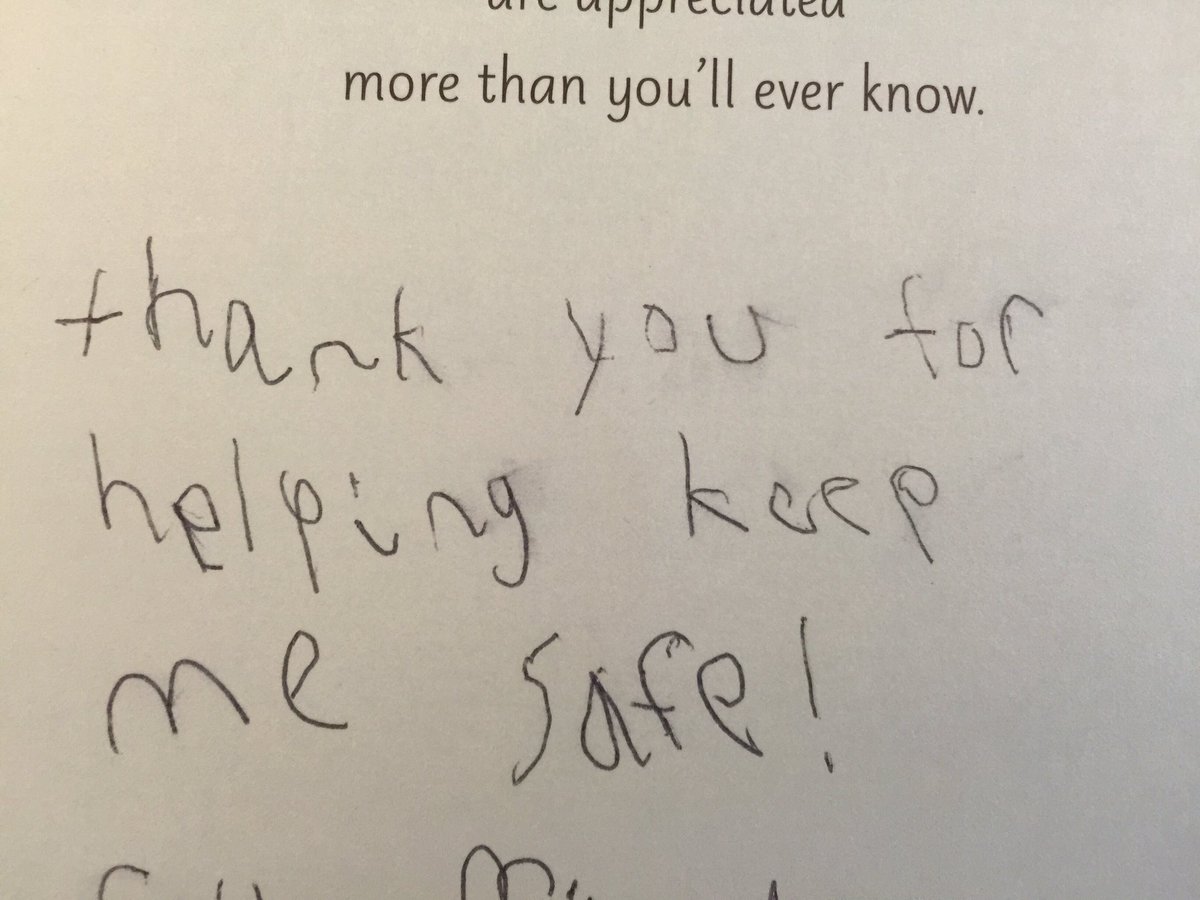 are appreciated
more than you'll ever know.
thank you for
helping keep
me safe!